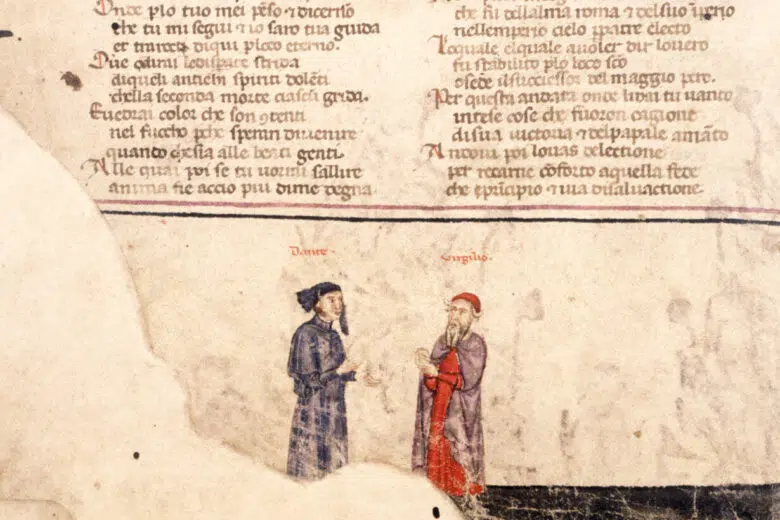 Onde p lo tuo mei pēso ⁊ dicerno
che tu mi segui ⁊ io saro tua guida
et trarrotti di qui p loco eterno.
Oue odirai le dispate strida
di queli antichi spiriti dolēti
chella seconda morte ciascū grida.
E uedrai color che son ꝯtenti
nel fuocho pche speran diuenire
quanto che sia alle beati genti.
Alle quai poi se tu uorrai sallire
anima fie accio piu di me degna
che fu dellalma roma ⁊ del suo īperio
nellemperio cielo p patre electo
La quale el quale a uoler dir lo uero
fu stabilito p lo loco sco
o sede il successor del maggio pero.
Per questa andata onde li dai tu uanto
intese cose che fuoron cagione
di sua uictoria ⁊ del papale amāto
Andoui poi lo uas electione
per recarne cōforto aquella fede
che e prīcipio e uia di saluactione.
Dante.
virgilio.